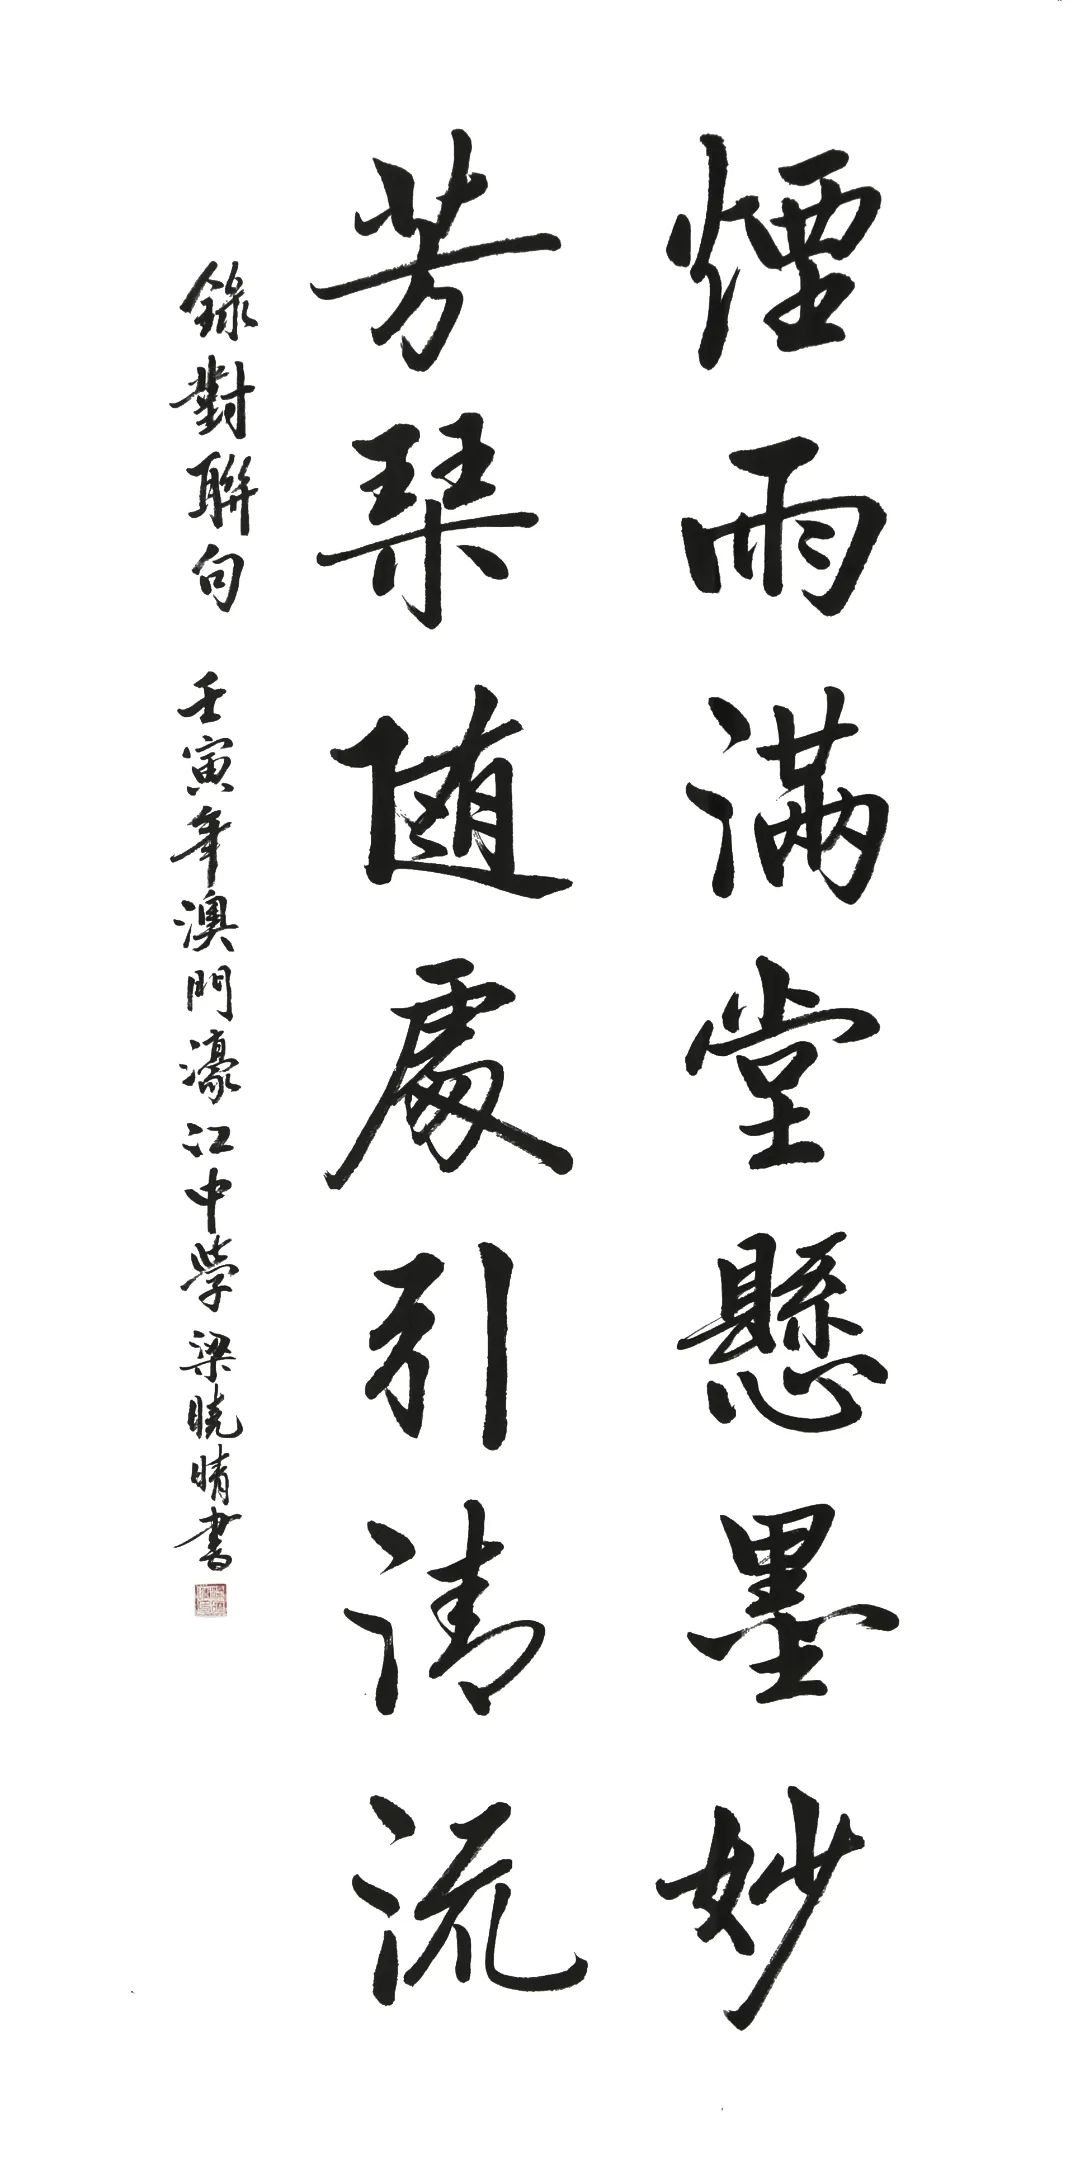 煙雨滿堂懸墨妙
芳琹随處引清流
錄對聯句 壬寅年澳門濠江中學梁曉晴書